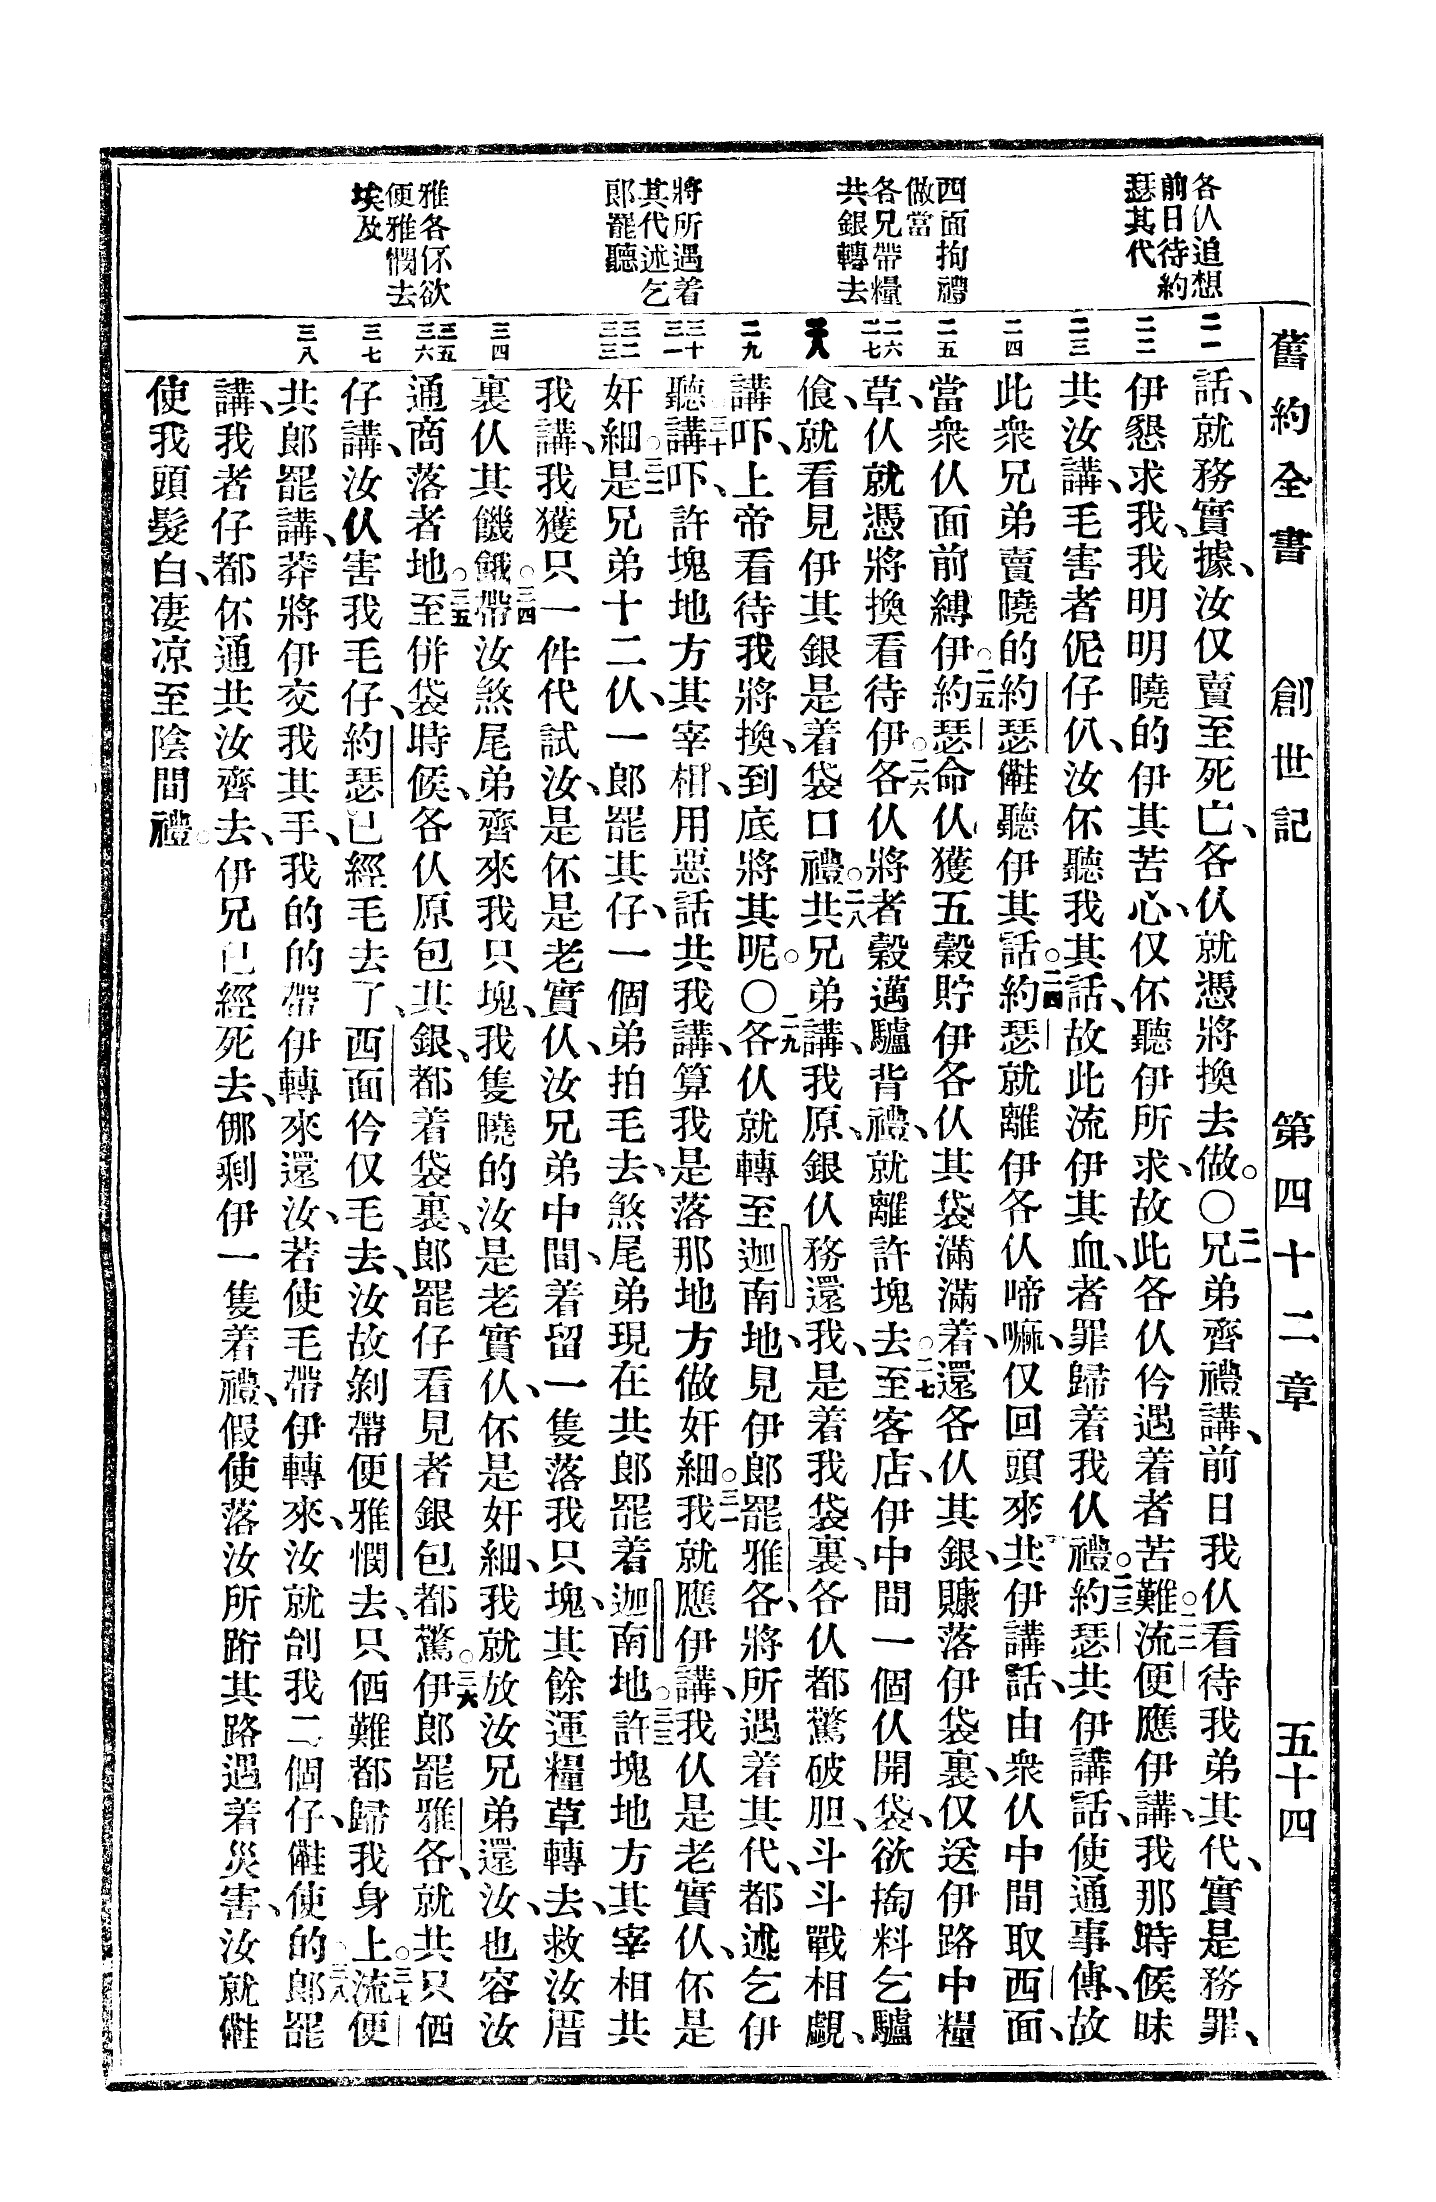 舊約全書　創世記　第四十二章　五十四
各仈追想
前日待約
瑟其代
西面拘禮
做當
各兄帶糧
共銀轉去
將所遇着
其代述乞
郎罷聽
雅各伓欲
便雅憫去
埃及
二一
二二
二三
二四
二五
二六
二七
二八
二九
三十
三一
三二
三三
三四
三五
三六
三七
三八
話、就務實據、汝仅賣至死亡、各仈就憑將換去做。〇二一兄弟齊禮講、前日我仈看待我弟其代、實是務罪、
伊懇求我、我明明曉的伊其苦心、仅伓聽伊所求、故此各仈仱遇着者苦難。二二流便應伊講、我那時候昧
共汝講、毛害者伲仔仈、汝伓聽我其話、故此流伊其血、者罪歸着我仈禮。二三約瑟共伊講話、使通事傳、故
此衆兄弟賣曉的約瑟𠆧聽伊其話。二四約瑟就離伊各仈啼嘛、仅回頭來共伊講話、由衆仈中間取西面、
當衆仈面前縛伊。二五約瑟命仈獲五穀貯伊各仈其袋滿滿着、還各仈其銀、賺落伊袋裏、仅送伊路中糧
草、仈就憑將換看待伊。二六各仈將者穀邁驢背禮、就離許塊去。二七至客店、伊中間一個仈開袋、欲掏料乞驢
飡、就看見伊其銀是着袋口禮。二八共兄弟講、我原銀仈務還我、是着我袋裏、各仈都驚破胆、斗斗戰相覷、
講吓、上帝看待我將換、到底將其呢。〇二九各仈就轉至迦南地、見伊郎罷雅各、將所遇着其代、都述乞伊
聽。三十講吓、許塊地方其宰相、用惡話共我講、算我是落那地方做奸細。三一我就應伊講、我仈是老實仈、伓是
奸細。三二是兄弟十二仈、一郎罷其仔、一個弟拍毛去、煞尾弟現在共郎罷着迦南地。三三許塊地方其宰相共
我講、我獲只一件代試汝、是伓是老實仈、汝兄弟中間、着留一隻落我只塊、其餘運糧草轉去、救汝厝
裏仈其饑餓。三四帶汝煞尾弟齊來我只塊、我隻曉的汝是老實仈、伓是奸細、我就放汝兄弟還汝、也容汝
通商落者地。三五至併袋時候、各仈原包其銀、都着袋裏、郎罷仔看見者銀包都驚。三六伊郎罷雅各、就共只伵
仔講、汝仈害我毛仔、約瑟已經毛去了、西面仱仅毛去、汝故剝帶便雅憫去、只伵難都歸我身上。三七流便
共郎罷講、莽將伊交我其手、我的的帶伊轉來還汝、若使毛帶伊轉來、汝就刣我二個仔、𠆧使的。三八郎罷
講、我者仔都伓通共汝齊去、伊兄已經死去、𠆧剩伊一隻着禮、假使落汝所跲其路遇着災害、汝就𠆧
使我頭髮白、凄凉至陰間禮。